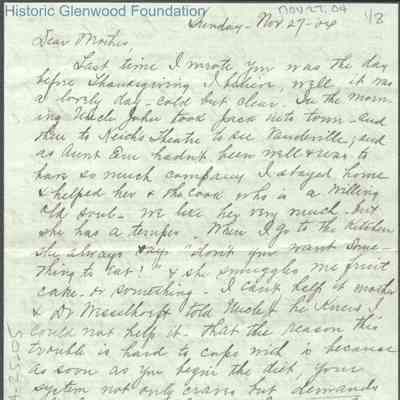 Historic Glenwood Foundation
Nov 27, 04
1/3
Sunday - Nov 27-04
Dear Mother,
Last time I wrote you was the day
before Thanksgiving I believe, well it was
a lovely day - cold but clear. In the morn-
ing Uncle John took Jack into town - and
then to Keith's Theatre to see Vaudeville, and
as Aunt Em hadn't been well & was to
have so much company I stayed home
& helped her & the cook who is a willing
old soul - we like her very much - but
she has a temper. When I go to the kitchen
she always says "don't you want some-
thing to eat?" & she smuggles me fruit
cake - or something - I can't help it mother
& Dr Wesselhoeft told Uncle J he knew I
could not help it - that the reason this
trouble is hard to cope with is because
as soon as you begin the diet, your
system not only craves but demands